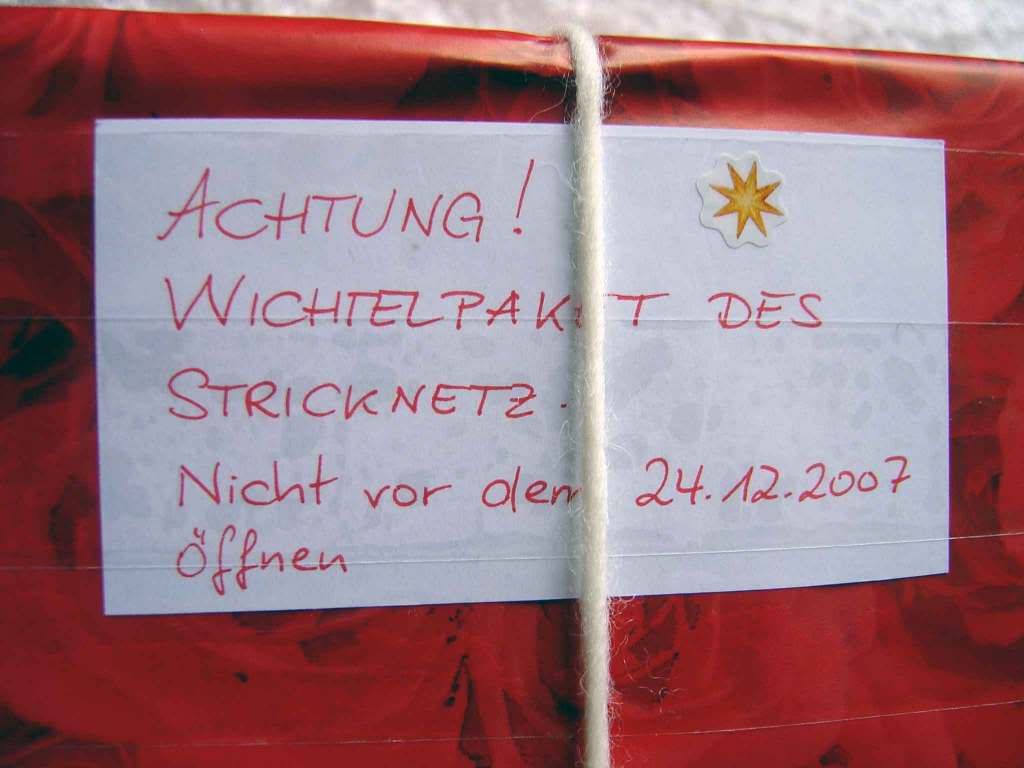 ACHTUNG!
WICHTELPAKET DES
STRICKNETZ.
Nicht vor dem 24.12.2007
Öffnen